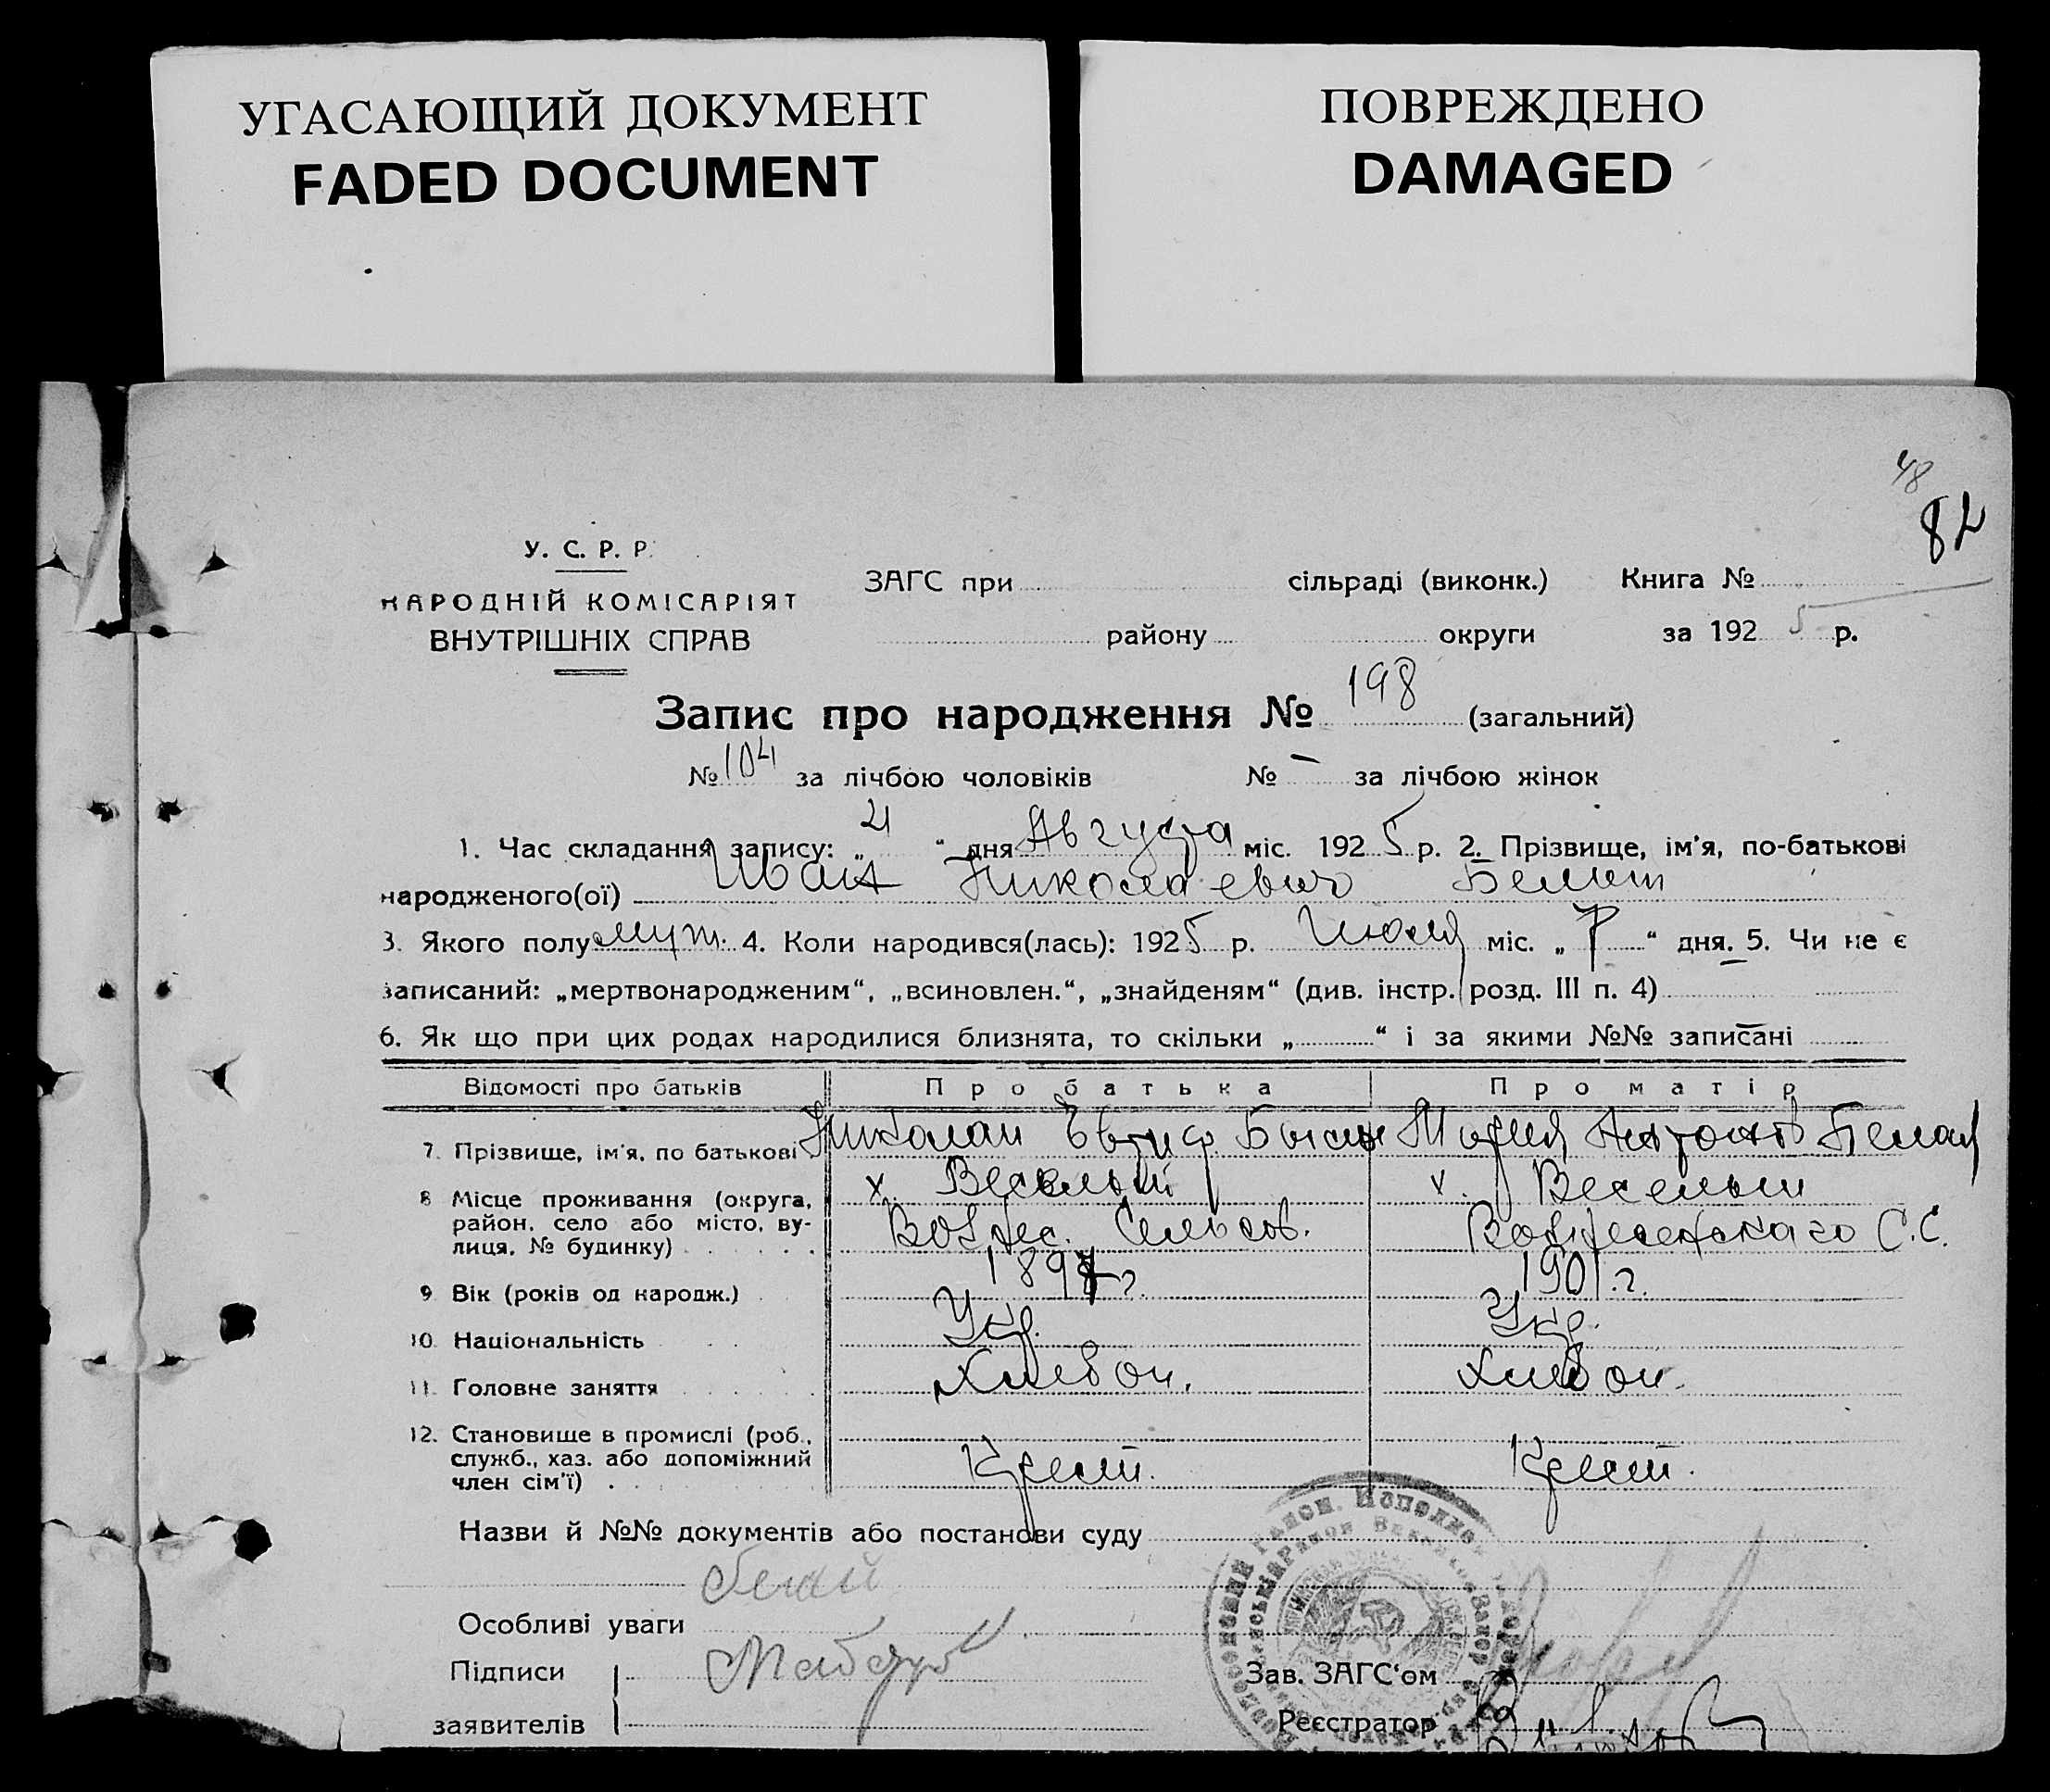 УГАСАЮЩИЙ ДОКУМЕНТ
FADED DOCUMENT
ПОВРЕЖДЕНО
DAMAGED
48
82
У. С. Р. Р.
НАРОДНІЙ КОМІСАРІЯТ
ВНУТРІШНІХ СПРАВ
ЗАГС при сільраді (виконк.) Книга №
району округи за 1925 р.
Запис про народження № 198 (загальний)
№ 104 за лічбою чоловіків № — за лічбою жінок
1. Час складання запису: „ 4 “ дня Августа міс. 1925 р. 2. Прізвище, ім'я, по-батькові
народженого(ої) Иван Николаевич Белый
3. Якого полу муж. 4. Коли народився(лась): 1925 р. Июля міс. „ 7 “ дня. 5. Чи не є
записаний: „мертвонародженим“, „всиновлен.“, „знайденям“ (див. інстр. розд. III п. 4) —
6. Як що при цих родах народилися близнята, то скільки „ “ і за якими №№ записані —
Відомості про батьків Про батька Про матір
7. Прізвище, ім'я, по батькові Николай Мария Антонов Белая
8 Місце проживання (округа, район, село або місто, вулиця, № будинку) х. Веселый х. Веселый
Вознес. Сельсов. Вознесенского С.С.
9 Вік (років од народж.) 1897 г. 1901 г.
10. Національність Укр. Укр.
11. Головне заняття Хлебоп. Хлебоп.
12. Становище в промислі (роб., служб., хаз. або допоміжний член сім'ї) Крест. Крест.
Назви й №№ документів або постанови суду
Белий
Особливі уваги
Підписи
заявителів
Зав. ЗАГС'ом
Реєстратор